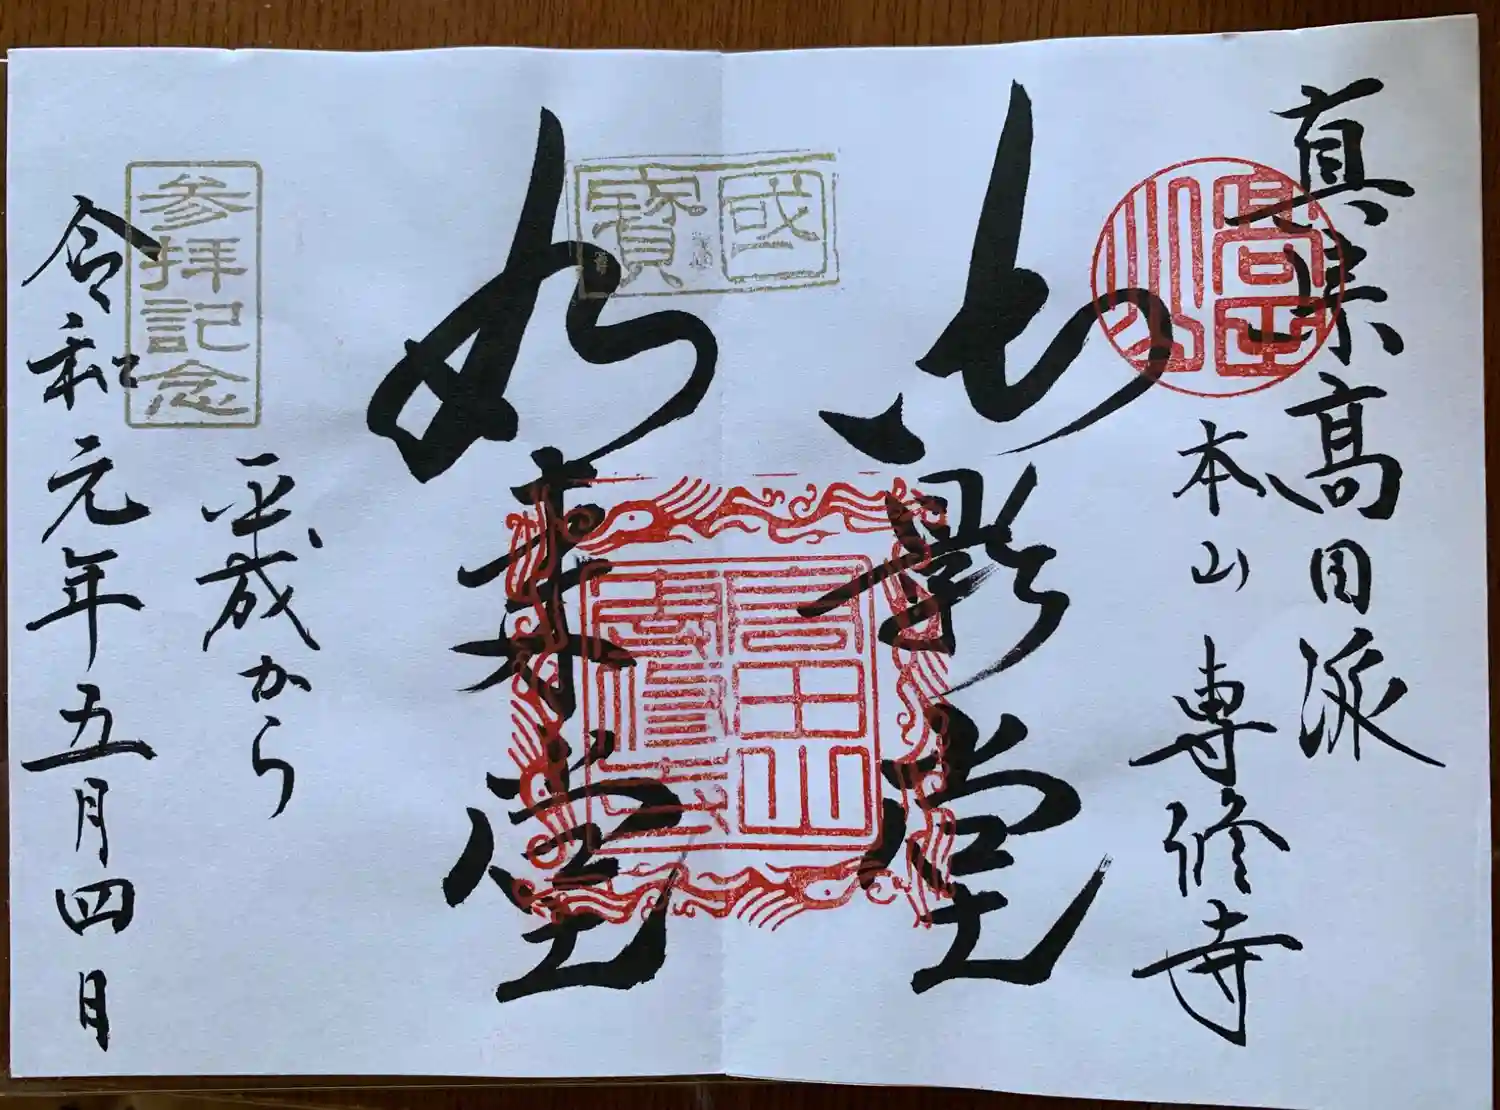 真宗高田派
本山 専修寺
高田山
御影堂
國寶
如来堂
高田山
專修寺
平成から
参拝記念
令和元年五月四日